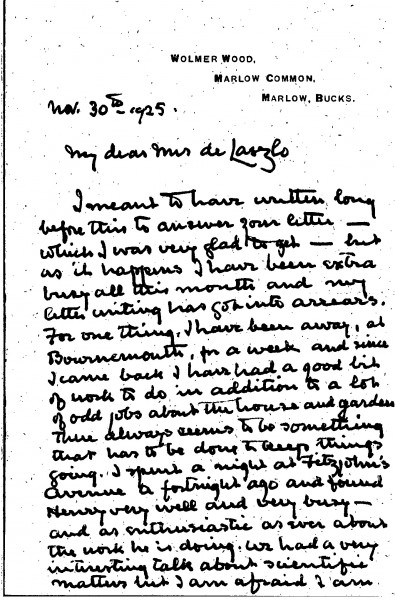 WOLMER WOOD,
MARLOW COMMON,
MARLOW, BUCKS.
Nov. 30th 1925.
My dear Mrs de Laszlo
I meant to have written long
before this to answer your letter —
which I was very glad to get — but
as it happens I have been extra
busy all this month and my
letter writing has got into arrears.
For one thing, I have been away, at
Bournemouth, for a week and since
I came back I have had a good bit
of work to do in addition to a lot
of odd jobs about the house and garden
There always seems to be something
that has to be done to keep things
going. I spent a night at Fitzjohn's
Avenue a fortnight ago and found
Henry very well and very busy —
and as enthusiastic as ever about
the work he is doing. We had a very
interesting talk about scientific
matters but I am afraid I am